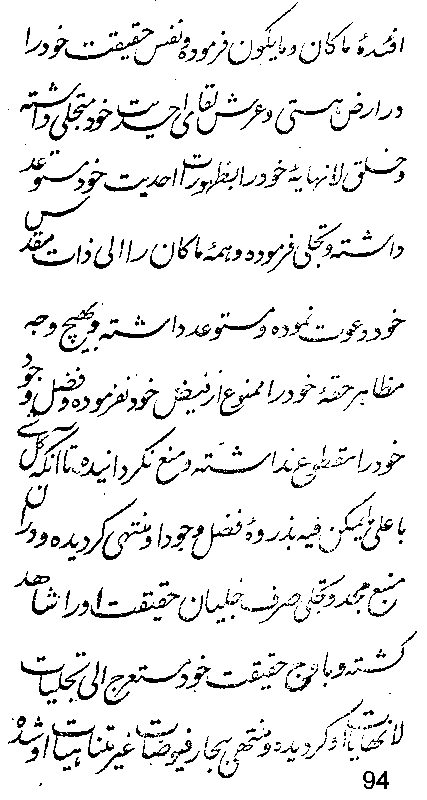 افئدهٔ ماکان و مایکون فرموده و نفس حقیقت خود را
در ارض هستی و عرش لقای احدیت خود متجلی داشته
و خلق لانهایهٔ خود را بظهورات احدیت خود مستوعد
داشته و تجلی فرموده و همهٔ ماکان را الی ذات مقدس
خود دعوت نموده و مستوعد داشته و بهیچ وجه
مظاهر حقهٔ خود را ممنوع از فیض خود نفرموده و فضل وجود
خود را منقطع نداشته و منع نگردانیده تا آنکه کل شیئ
باعلی مایمکن فیه بذروهٔ فضل وجود او منتهی گردیده و در آن
منبع مجد و تجلی صرف حقیقت او را شاهد
گشته و باوج حقیقت خود مستعرج الی تجلیات
لانهایات او گردیده و منتهی ببحار فیوضات غیر متناهیات او شده
94